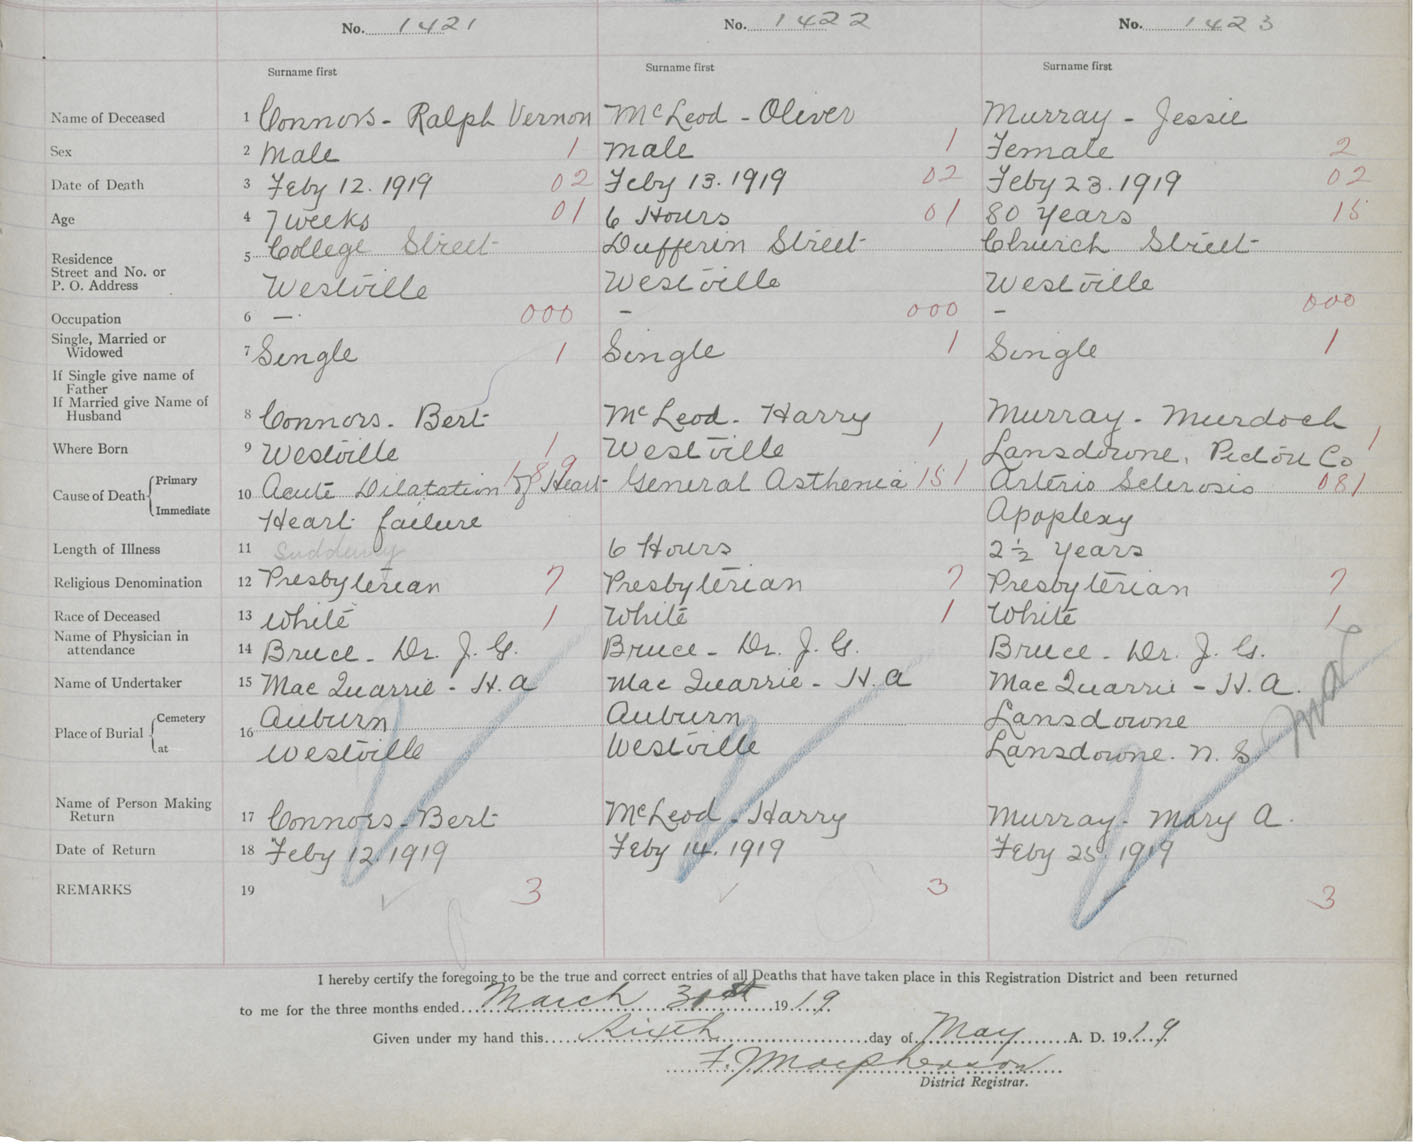 No. 1421 No. 1422 No. 1423
Surname first Surname first Surname first
Name of Deceased 1 Connors - Ralph Vernon McLeod - Oliver Murray - Jessie
Sex 2 Male 1 Male 1 Female 2
Date of Death 3 Feby 12. 1919 02 Feby 13. 1919 02 Feby 23. 1919 02
Age 4 7 weeks 01 6 Hours 01 80 Years 15
Residence Street and No. or P. O. Address 5 College Street Dufferin Street Church Street
Westville Westville Westville
Occupation 6 — 000 - 000 - 000
Single, Married or Widowed 7 Single 1 Single 1 Single 1
If Single give name of Father
If Married give Name of Husband 8 Connors. Bert McLeod. Harry Murray. Murdoch
Where Born 9 Westville 1 Westville 1 Lansdowne, Pictou Co 1
Cause of Death Primary 10 Acute Dilatation of Heart 189 General Asthenia 151 Arterio Sclerosis 081
Immediate Heart failure Apoplexy
Length of Illness 11 Suddenly 6 Hours 2½ Years
Religious Denomination 12 Presbyterian 7 Presbyterian 7 Presbyterian 7
Race of Deceased 13 White 1 White 1 White 1
Name of Physician in attendance 14 Bruce - Dr. J. G. Bruce - Dr. J. G. Bruce - Dr. J. G.
Name of Undertaker 15 Mac Quarrie - H. A Mac Quarrie - H. A Mac Quarrie - H. A.
Place of Burial Cemetery 16 Auburn Auburn Lansdowne
at Westville Westville Lansdowne. N. S
Name of Person Making Return 17 Connors - Bert McLeod. Harry Murray. Mary A.
Date of Return 18 Feby 12. 1919 Feby 14. 1919 Feby 25. 1919
REMARKS 19 3 3 3
I hereby certify the foregoing to be the true and correct entries of all Deaths that have taken place in this Registration District and been returned
to me for the three months ended March 31st 1919
Given under my hand this Sixth day of May A. D. 1919
F. J. Macpherson
District Registrar.